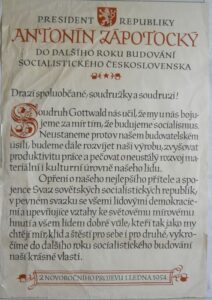 PRESIDENT REPUBLIKY
ANTONÍN ZÁPOTOCKÝ
DO DALŠÍHO ROKU BUDOVÁNÍ
SOCIALISTICKÉHO ČESKOSLOVENSKA
Drazí spoluobčané, soudružky a soudruzi!
Soudruh Gottwald nás učil, že my u nás boju-
jeme za mír tím, že budujeme socialismus.
Neustaneme proto v našem budovatelském
úsilí, budeme dále rozvíjet naši výrobu, zvyšovat
produktivitu práce a pečovat o neustálý rozvoj ma-
teriální i kulturní úrovně našeho lidu.
Opřeni o našeho nejlepšího přítele a spo-
jence Svaz sovětských socialistických republik,
v pevném svazku se všemi lidovými demokracie-
mi a upevňujíce vztahy ke světovému mírovému
hnutí a všem lidem dobré vůle, kteří tak jako my
chtějí mír, klid a štěstí pro sebe i pro druhé, vykro-
číme do dalšího roku socialistického budování
naší krásné vlasti.
Z NOVOROČNÍHO PROJEVU 1. LEDNA 1954